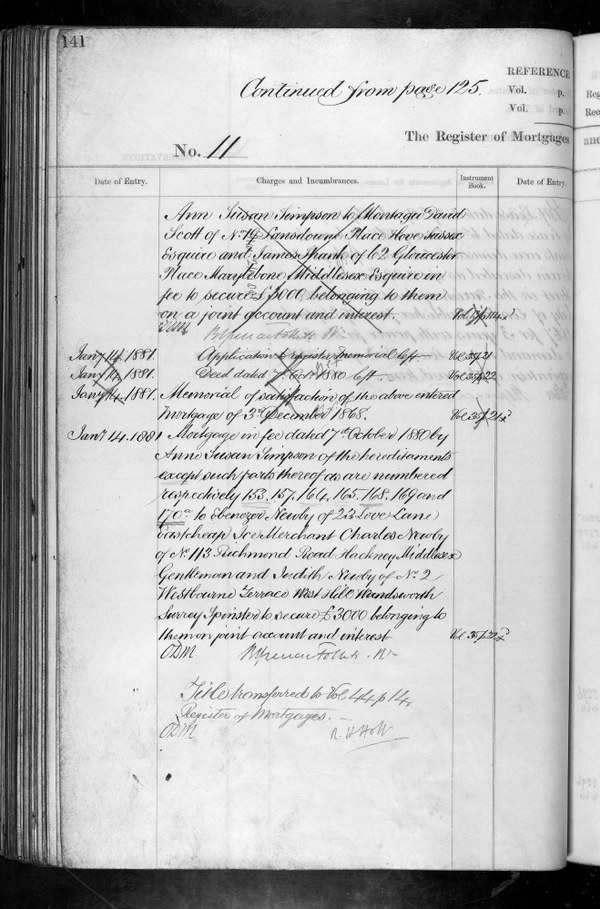 141
Continued from page 125.
REFERENCE
Vol. p.
Vol. p.
The Register of Mortgages
No. 11
Date of Entry.
Charges and Incumbrances.
Instrument Book.
Date of Entry.
Ann Susan Simpson to Montagu David
Scott of No. 14 Lansdowne Place Hove Sussex
Esquire and James Shank of 62 Gloucester
Place Marylebone Middlesex Esquire in
fee to secure £3000 belonging to them
on a joint account and interest.
Jany. 14. 1881. Application to register memorial left Vol 35 p 21
Jany. 14. 1881. Deed dated 7 Octr. 1880 left Vol. 35 p 22
Jany. 14. 1881. Memorial of satisfaction of the above entered
Mortgage of 3rd December 1868. Vol. 35 p 21
Jany. 14. 1881 Mortgage in fee dated 7th October 1880 by
Anne Susan Simpson of the hereditaments
except such parts thereof as are numbered
respectively 153. 157. 164. 165. 168. 169 and
170a. to Ebenezer Newby of 23 Love Lane
Eastcheap Ice Merchant Charles Newby
of No. 113 Richmond Road Hackney Middlesex
Gentleman and Judith Newby of No. 2
Westbourne Terrace West Hill Wandsworth
Surrey Spinster to secure £3000 belonging to
them on joint account and interest Vol. 35 p 22
ODM
Title transferred to Vol 44 p 14,
Register of Mortgages.
ODM R. H. Holt